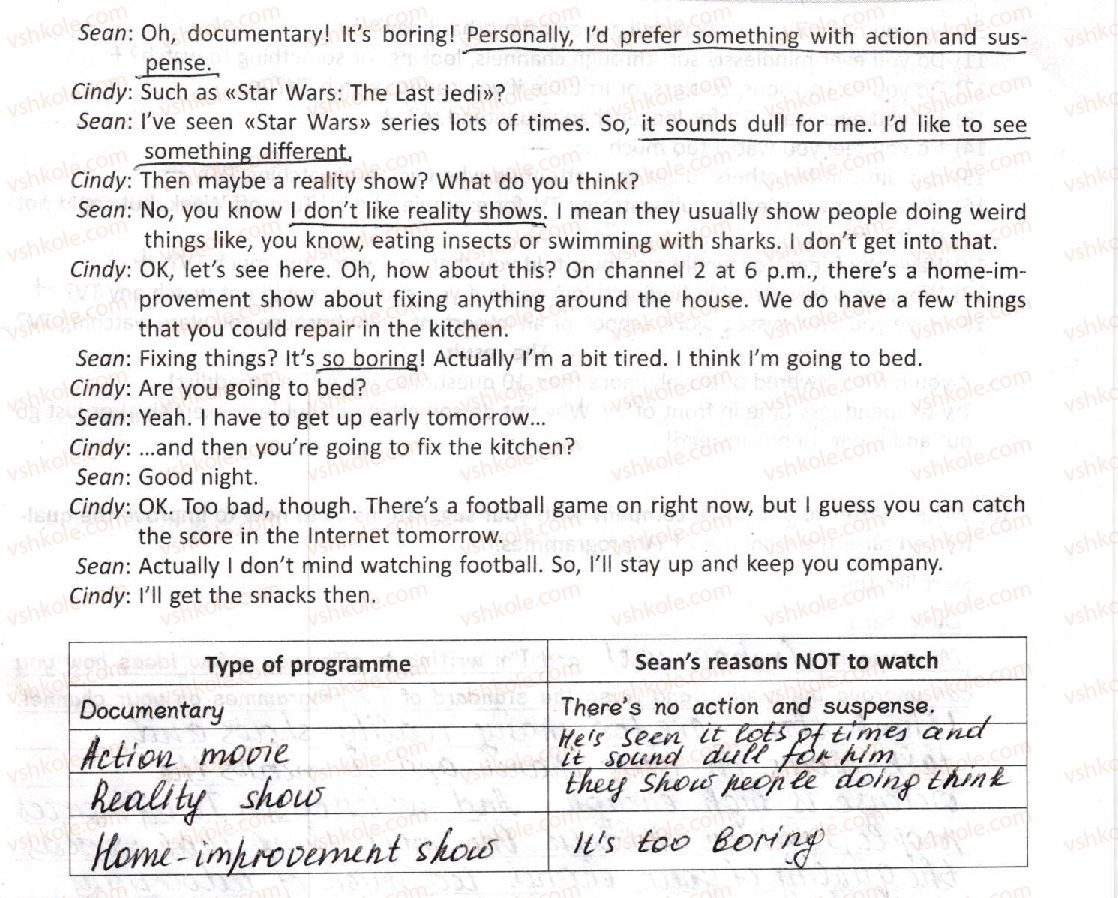 Sean: Oh, documentary! It's boring! Personally, I'd prefer something with action and sus-
pense.
Cindy: Such as «Star Wars: The Last Jedi»?
Sean: I've seen «Star Wars» series lots of times. So, it sounds dull for me. I'd like to see
something different.
Cindy: Then maybe a reality show? What do you think?
Sean: No, you know I don't like reality shows. I mean they usually show people doing weird
things like, you know, eating insects or swimming with sharks. I don't get into that.
Cindy: OK, let's see here. Oh, how about this? On channel 2 at 6 p.m., there's a home-im-
provement show about fixing anything around the house. We do have a few things
that you could repair in the kitchen.
Sean: Fixing things? It's so boring! Actually I'm a bit tired. I think I'm going to bed.
Cindy: Are you going to bed?
Sean: Yeah. I have to get up early tomorrow...
Cindy: ...and then you're going to fix the kitchen?
Sean: Good night.
Cindy: OK. Too bad, though. There's a football game on right now, but I guess you can catch
the score in the Internet tomorrow.
Sean: Actually I don't mind watching football. So, I'll stay up and keep you company.
Cindy: I'll get the snacks then.
Type of programme
Sean's reasons NOT to watch
Documentary
There's no action and suspense.
Action movie
He's seen it lots of times and
it sound dull for him
Reality show
they show people doing think
Home-improvement show
It's too boring
vshkole.com